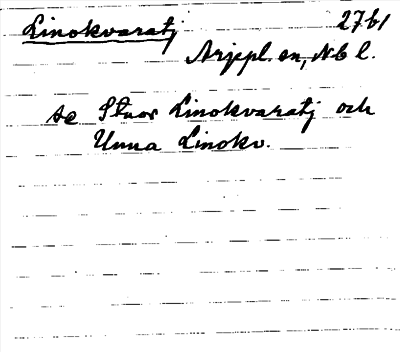 Linokvaratj 27b1
Arjepl. sn, Nb l.
se Stuor Linokvaratj och
Unna Linokv.